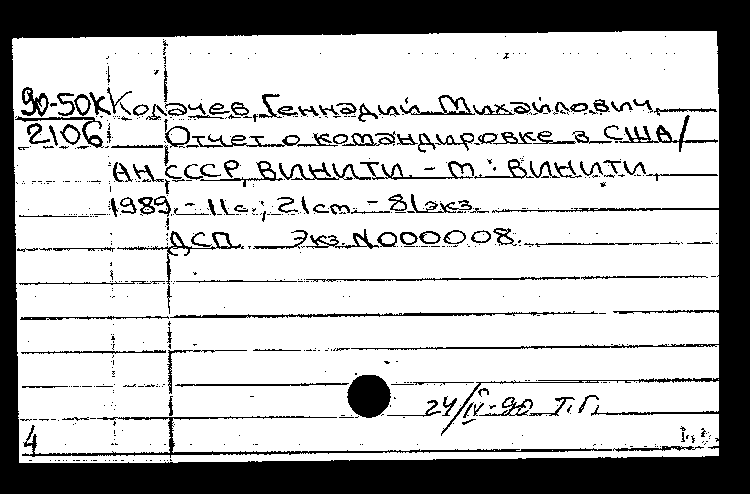 90-50К Колачев, Геннадий Михайлович,
2106 Отчет о командировке в США/
АН СССР, ВИНИТИ. - М.: ВИНИТИ,
1989. - 11 с.; 21 cm. - 81 экз.
ДСП. Экз. N 000008.
24/IV-90 Т.Г.
4